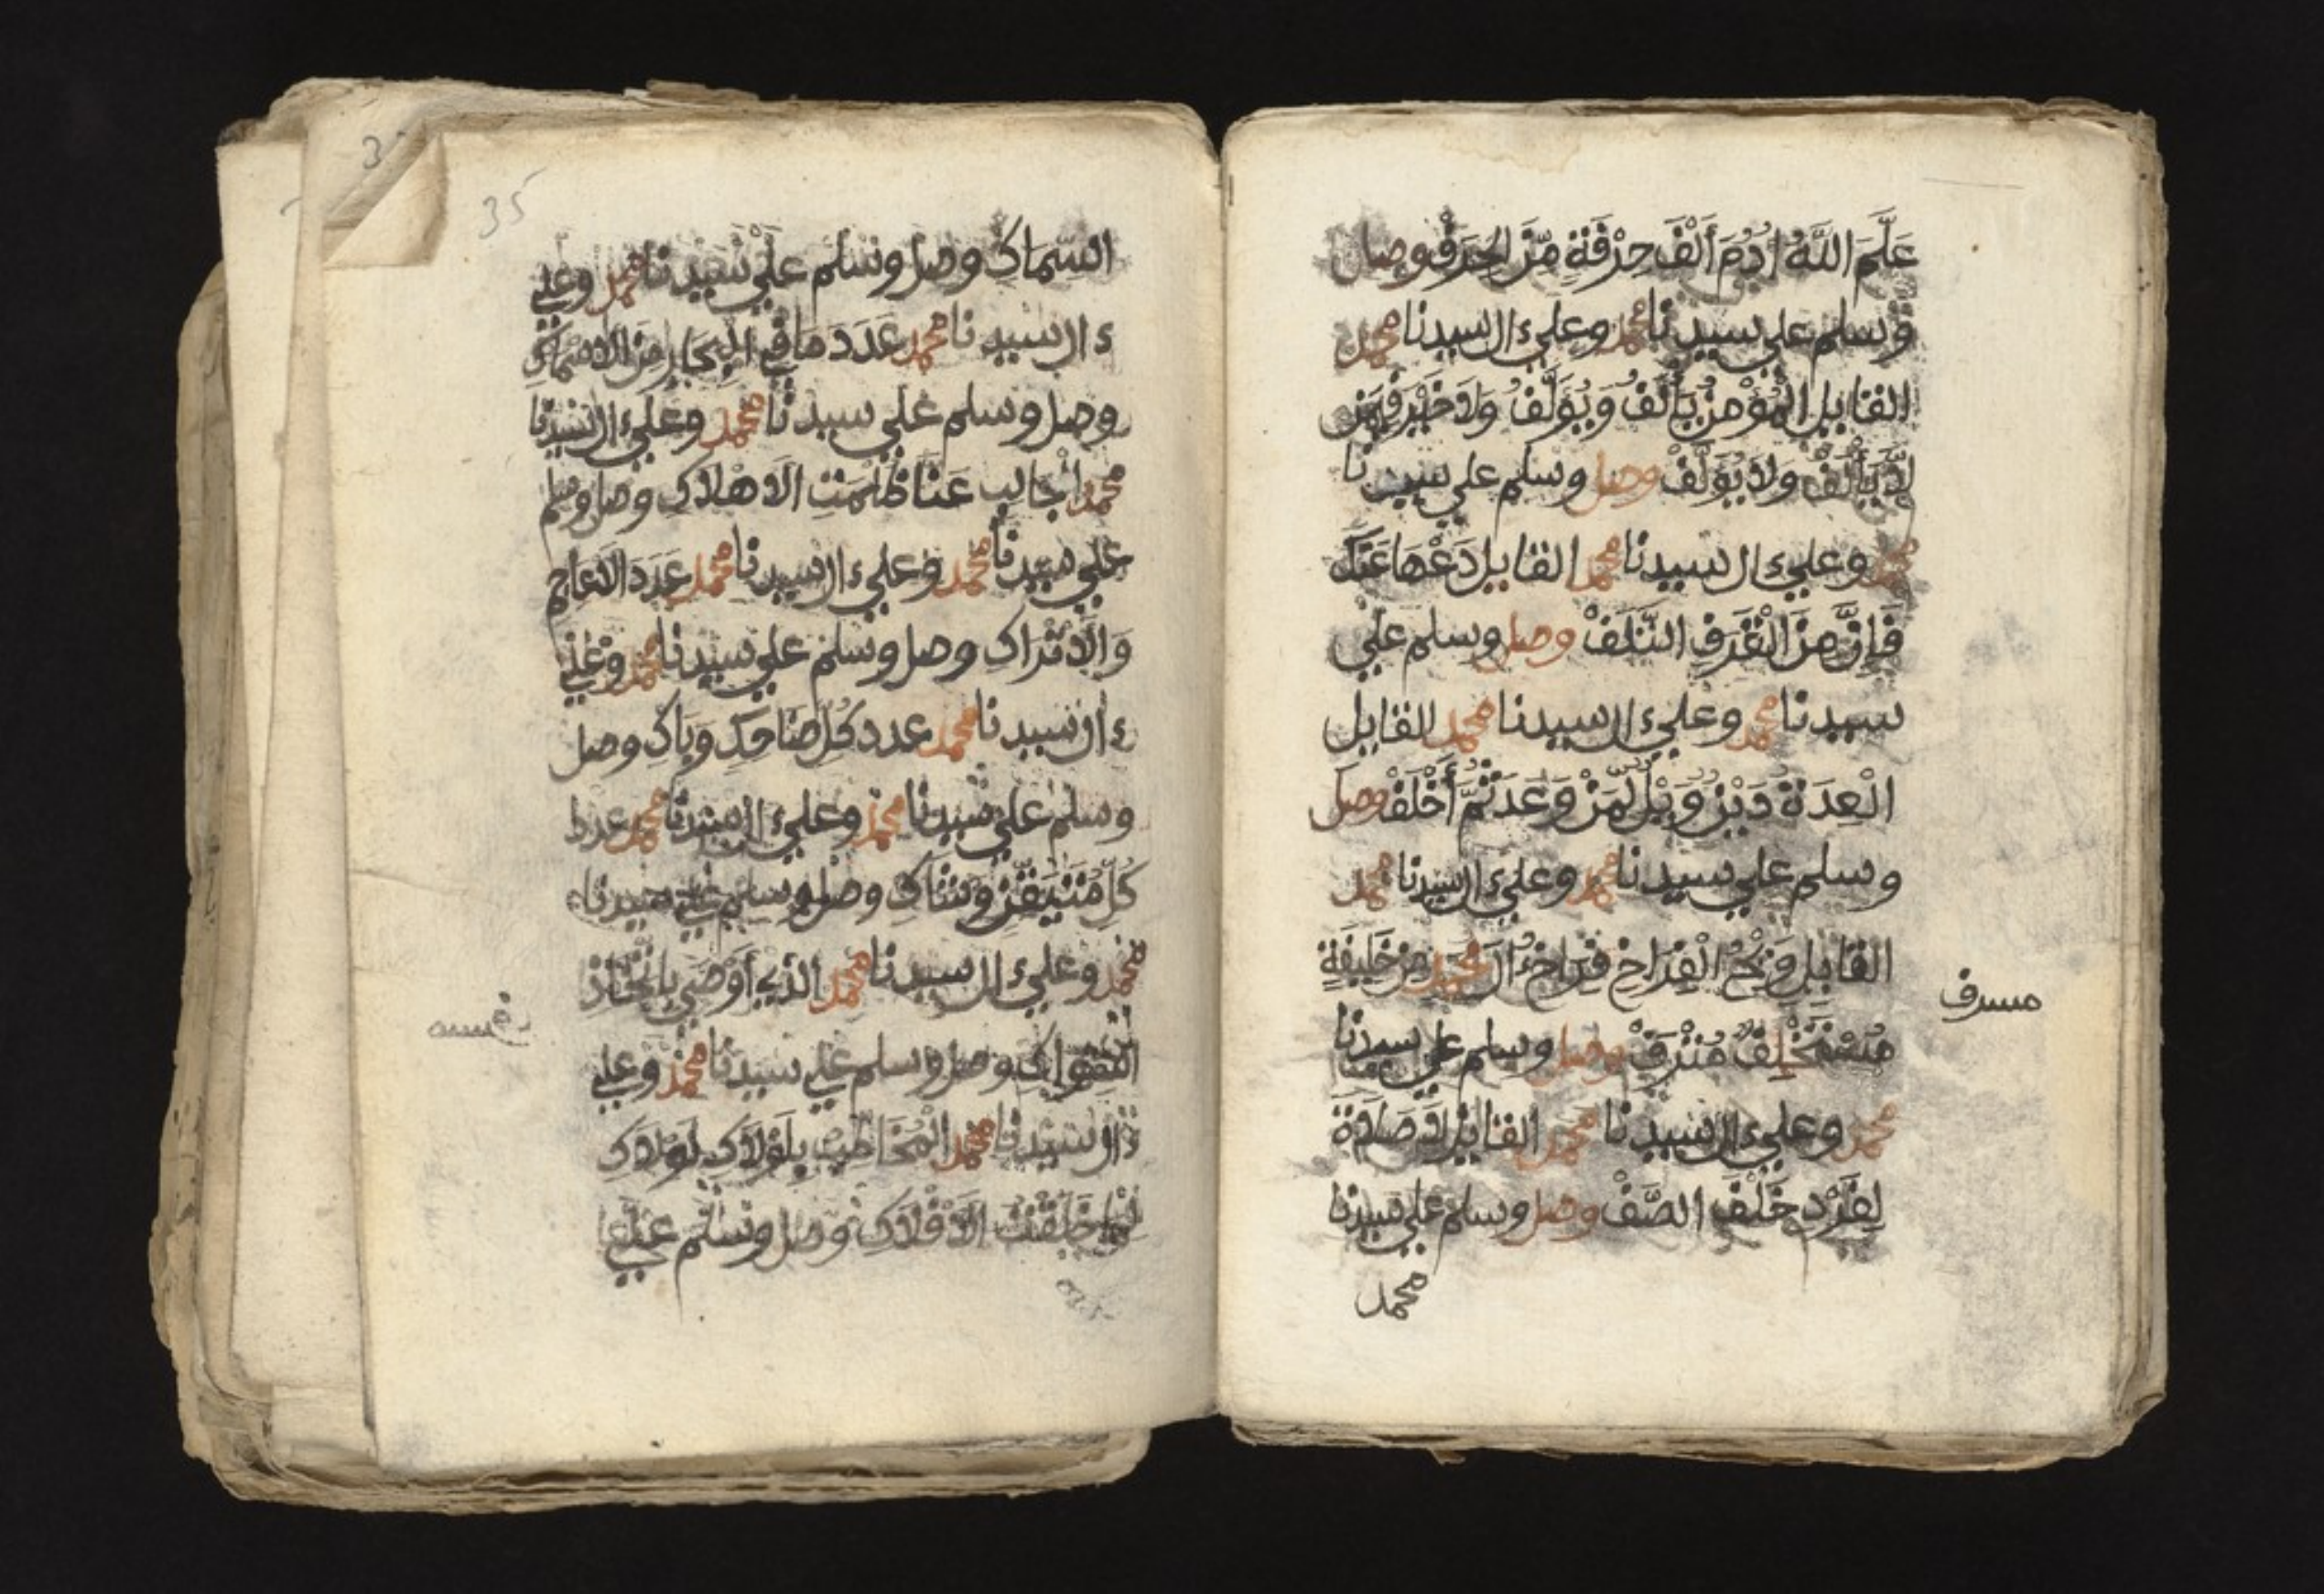 عَلَّمَ اللَّهُ ءَادَمَ أَلْفَ حِرْفَةٍ مِّنَ الْحِرَفْ وصل
وسلم علي سيدنا محمد وعلي ءال سيدنا محمد
القايل الْمُؤْمِنُ يَأْلَفُ وَيُؤْلَفُ وَلَا خَيْرَ فِيمَنْ
لَّا يَأْلَفْ وَلَا يُؤْلَفْ وصل وسلم علي سيدنا
محمد وعلي ءال سيدنا محمد القايل دَعْهَا عَنكَ
فَإِنَّ مِنَ الْقَرَفِ التَّلَفْ وصل وسلم علي
سيدنا محمد وعلي ءال سيدنا محمد القايل
الْعِدَةُ دَيْنٌ وَيْلٌ لِّمَنْ وَعَدَ ثُمَّ أَخْلَفْ وصل
وسلم علي سيدنا محمد وعلي ءال سيدنا محمد
القايل وَيْحُ الْفِرَاخِ فِرَاخِ ءَالِ محمد مِنْ خَلِيفَةٍ
مُسْتَخْلَفٍ مُتْرَفْ وصل وسلم علي سيدنا
محمد وعلي ءال سيدنا محمد القايل لَا صَلَاةَ
لِفَرْدٍ خَلْفَ الصَّفْ وصل وسلم علي سيدنا
محمد
مسرف
35
السماك وصل وسلم علي سيدنا محمد وعلي
ءال سيدنا محمد عَدَدَ مَا فِي البِحَارِ مِنَ الاسْمَاكِ
وصل وسلم علي سيدنا محمد وعلي ءال سيدنا
محمد جالب عَنَّا ظلمت الَاهْلَاكِ وصل وسلم
علي سيدنا محمد وعلي ءال سيدنا محمد عَدَدَ الَاعاجم
وَالَاتْرَاكِ وصل وسلم علي سيدنا محمد وعلي
ءال سيدنا محمد عدد كُلِّ ضَاحِكٍ وَبَاكِ وصل
وسلم علي سيدنا محمد وعلي ءال سيدنا محمد عدد
كُلِّ مُتَيَقِّنٍ وَشَاكِ وصل وسلم علي سيدنا
محمد وعلي ءال سيدنا محمد الذي أَوْصَي بِاتِّخَاذِ
وصل وسلم علي سيدنا محمد وعلي
ءال سيدنا محمد الْمُخَاطَبِ بِلَوْلَاكَ لَوْلَاكَ
لَمَا خَلَقْتُ الَافْلَاكَ وصل وسلم علي